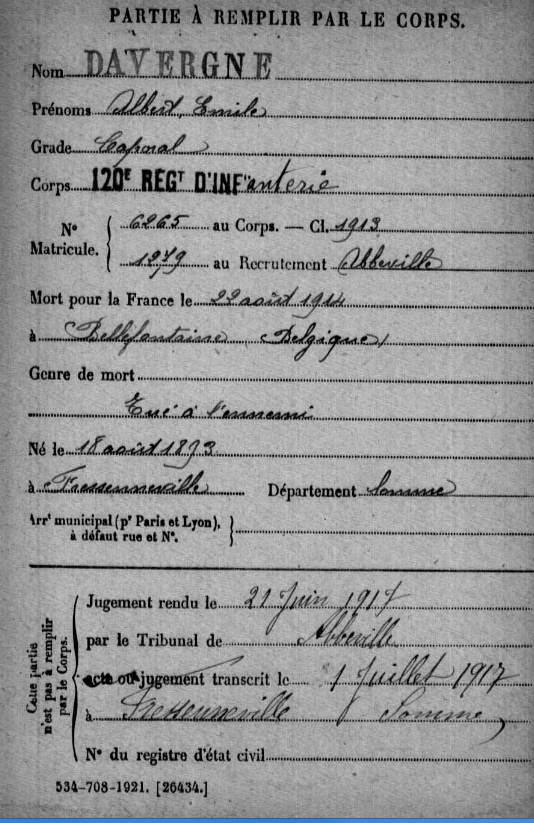 PARTIE À REMPLIR PAR LE CORPS.
Nom DAVERGNE
Prénoms Albert, Emile
Grade Caporal
Corps 120E REGT D'INFanterie
No Matricule. 6265 au Corps. — Cl. 1913
1279 au Recrutement Abbeville
Mort pour la France le 22 août 1914
à Bellefontaine (Belgique)
Genre de mort
Tué à l'ennemi
Né le 18 août 1893
à Fressenneville Département Somme
Arrt municipal (pr Paris et Lyon), à défaut rue et No.
Cette partie n'est pas à remplir par le Corps.
Jugement rendu le 21 Juin 1917
par le Tribunal de Abbeville
acte ou jugement transcrit le 1 Juillet 1917
à Fressenneville Somme
No du registre d'état civil
534-708-1921. [26434.]